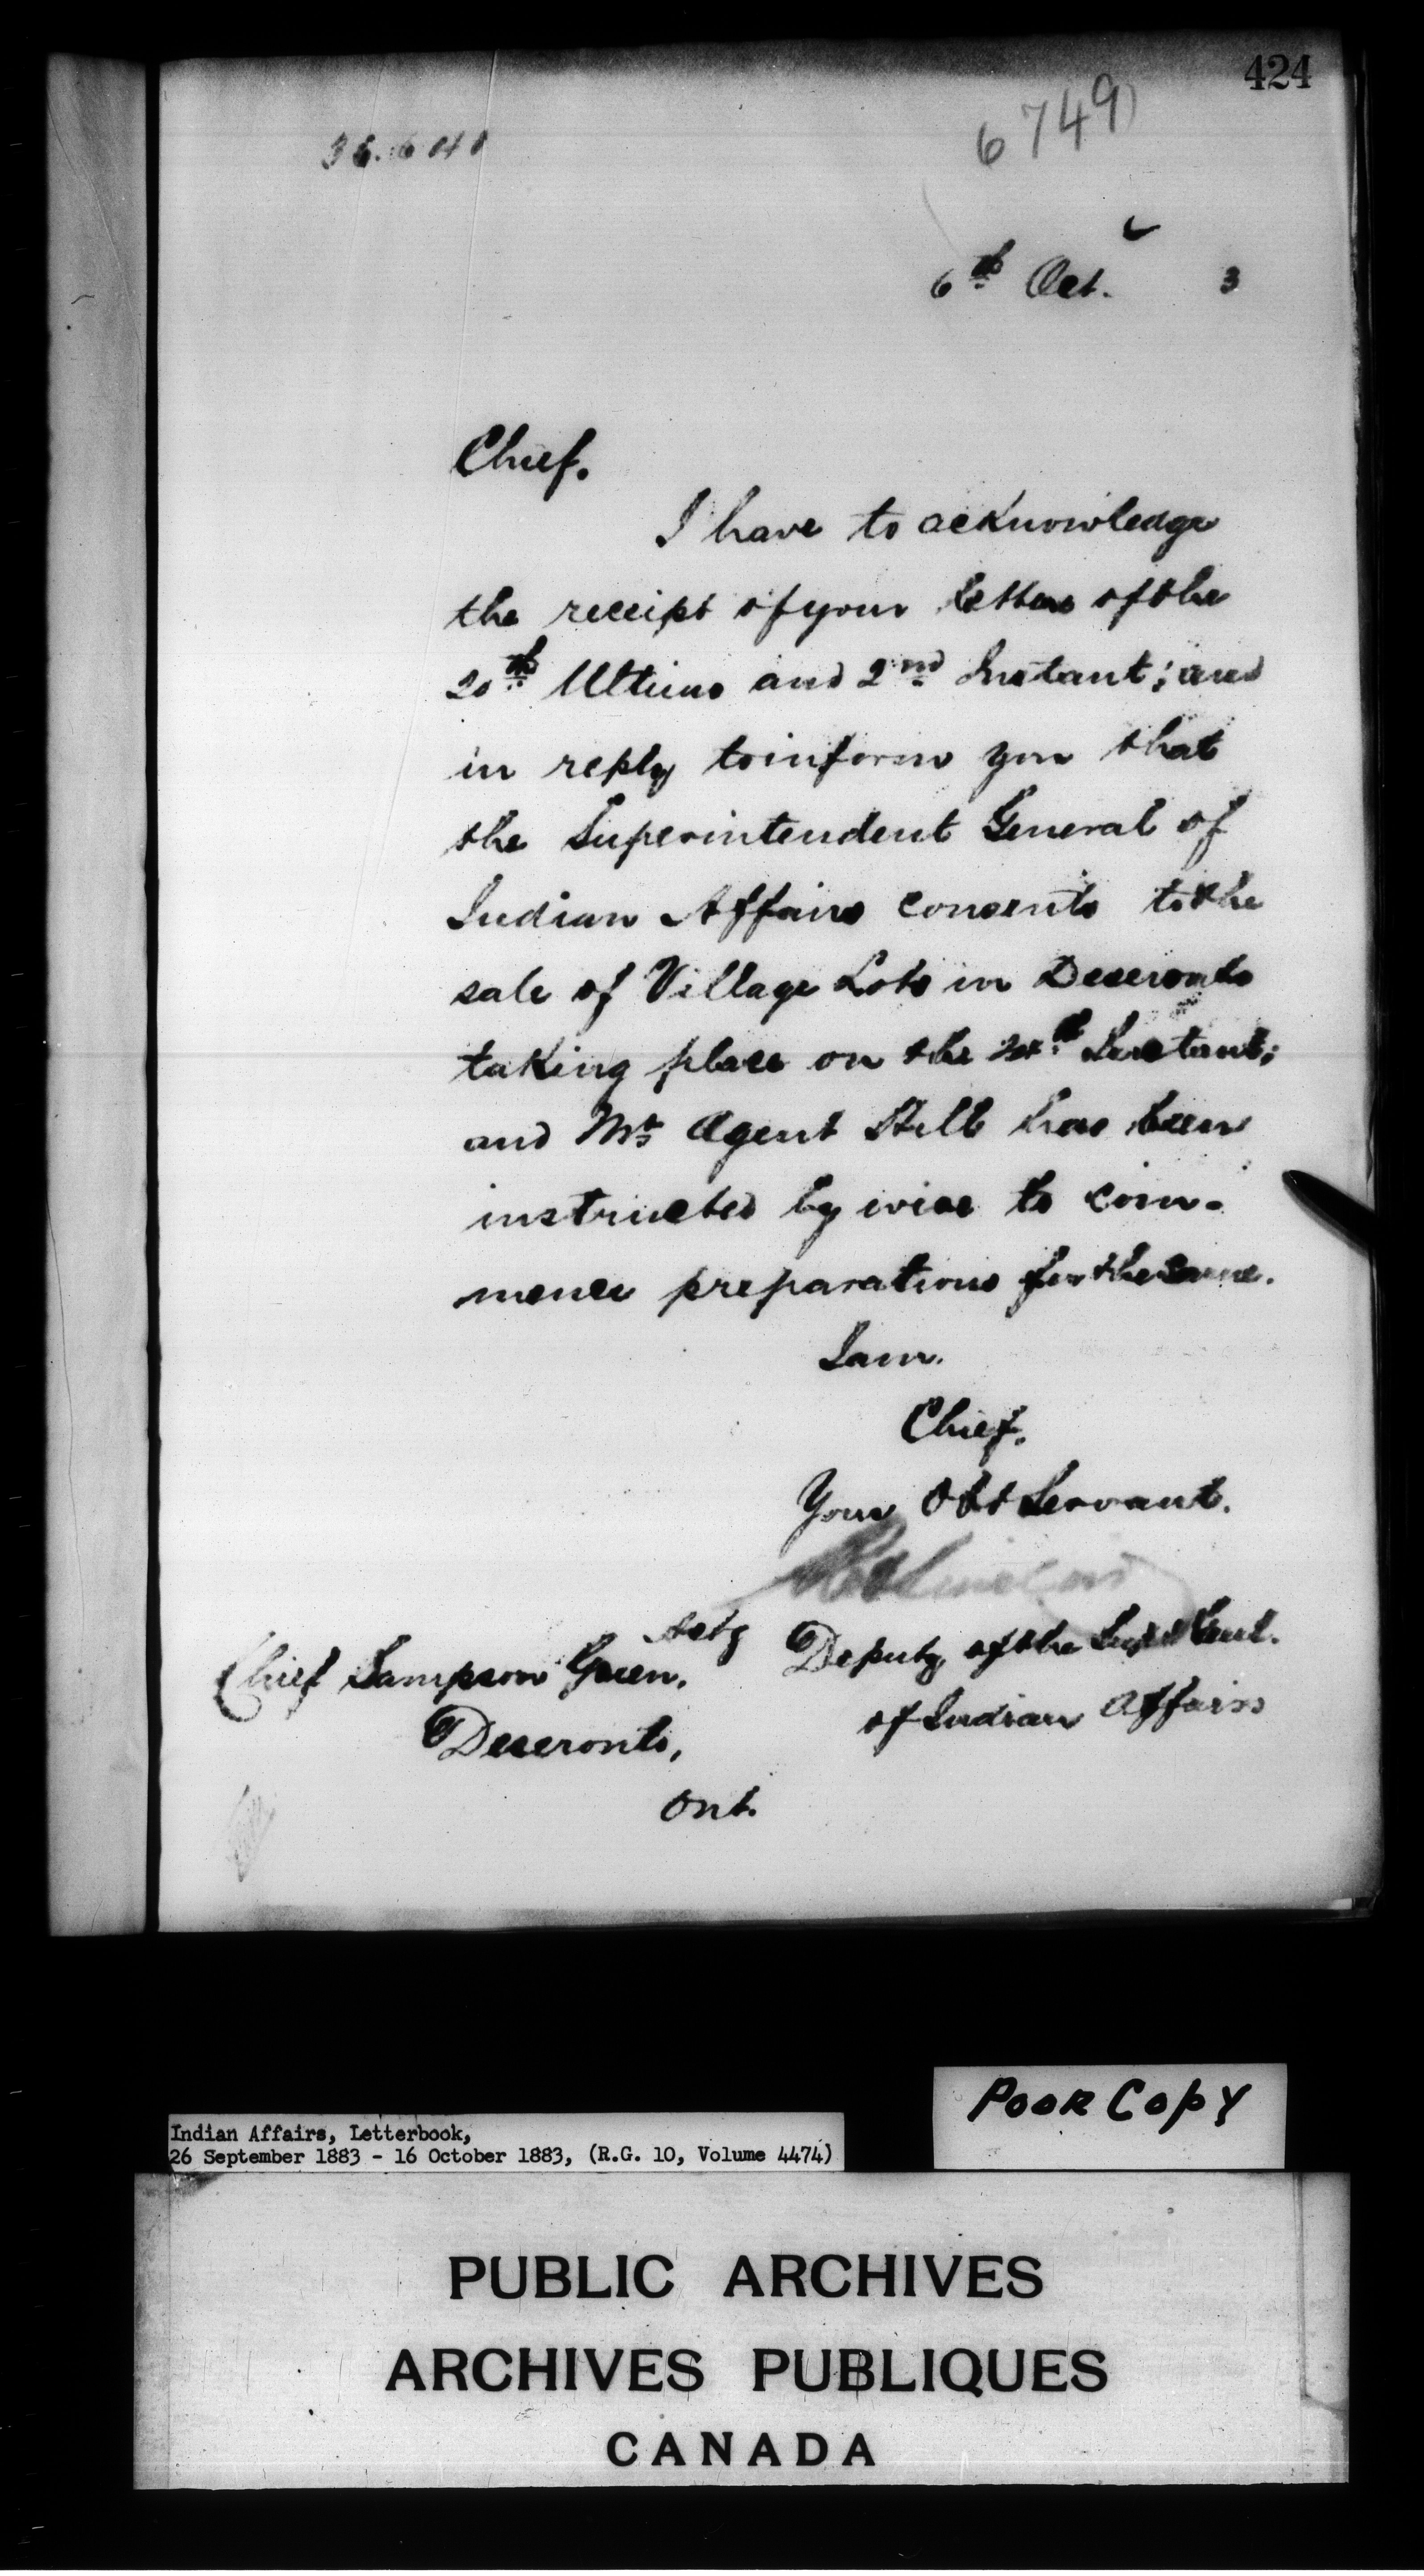 424
6749
36.604
6th Oct. 3
Chief.
I have to acknowledge
the receipt of your letters of the
20th Ultimo and 2nd Instant; and
in reply to inform you that
the Superintendent General of
Indian Affairs consents to the
sale of Village Lots in Deseronto
taking place on the Instant;
and Mr Agent Hill has been
instructed by wire to com-
mence preparations for the same.
I am.
Chief.
Your Obt Servant.
Actg Deputy of the Supt Genl.
of Indian Affairs
Chief Sampson Green.
Deseronto,
Ont.
POOR COPY
Indian Affairs, Letterbook,
26 September 1883 - 16 October 1883, (R.G. 10, Volume 4474)
PUBLIC ARCHIVES
ARCHIVES PUBLIQUES
CANADA